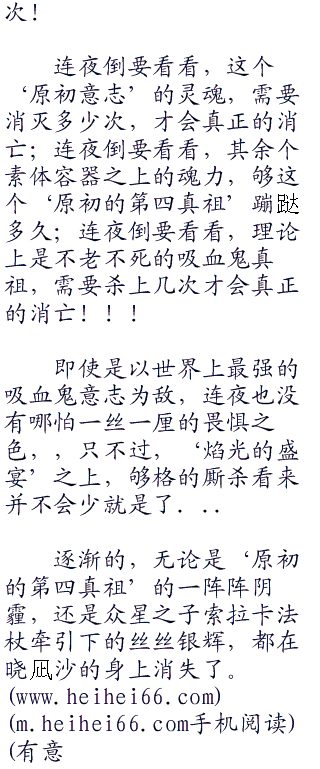 次！
连夜倒要看看，这个
‘原初意志’的灵魂，需要
消灭多少次，才会真正的消
亡；连夜倒要看看，其余个
素体容器之上的魂力，够这
个‘原初的第四真祖’蹦跶
多久；连夜倒要看看，理论
上是不老不死的吸血鬼真
祖，需要杀上几次才会真正
的消亡！！！
即使是以世界上最强的
吸血鬼意志为敌，连夜也没
有哪怕一丝一厘的畏惧之
色，，只不过，‘焰光的盛
宴’之上，够格的厮杀看来
并不会少就是了．．．
逐渐的，无论是‘原初
的第四真祖’的一阵阵阴
霾，还是众星之子索拉卡法
杖牵引下的丝丝银辉，都在
晓凪沙的身上消失了。
(www.heihei66.com)
(m.heihei66.com手机阅读)
(有意